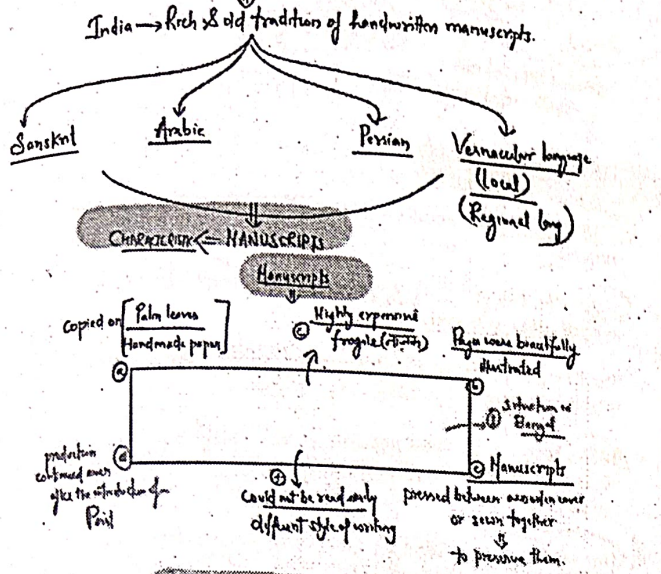 India → Rich & old tradition of handwritten manuscripts.
Sanskrit
Arabic
Persian
Vernacular language
(Local)
(Regional lang)
CHARACTERISTIC ⇐ MANUSCRIPTS
Manuscripts
Copied on [Palm leaves
Handmade paper]
(e) Highly expensive
fragile
Pages were beautifully
illustrated
(a)
(b)
situation in
Bengal
production
continued even
after the introduction of
Print
(d)
(f)
Could not be read easily
different style of writing
(c) Manuscripts
pressed between wooden cover
or sewn together
to preserve them.